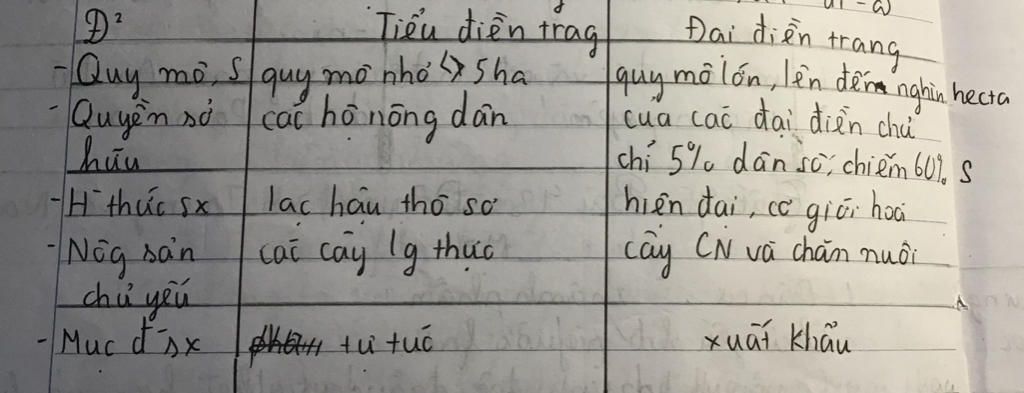 Đ² Tiểu điền trag Đai điền trang
- Quy mô, S quy mô nhỏ <> 5ha quy mô lớn, lên đến nghìn hecta
- Quyền sở các hộ nông dân của các đại điền chủ
hữu chỉ 5% dân số, chiếm 60% S
- H thức sx lạc hậu thô sơ hiện đại, cơ giới hoá
- Nôg sản các cây lg thực cây CN và chăn nuôi
chủ yếu
- Mục đ sx tự túc xuất khẩu